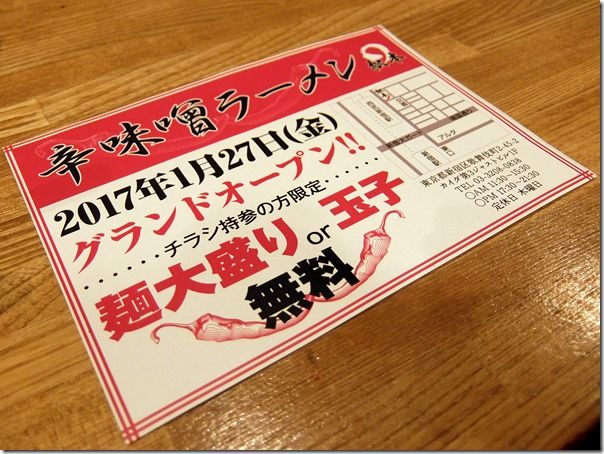 辛味噌ラーメン
2017年1月27日(金)
グランドオープン!!
……チラシ持参の方限定……
麺大盛り or 玉子
無料
アルタ
東口
新宿駅
東京都新宿区歌舞伎町2-45-2
カイダ第3ジャストビル1F
TEL 03-3208-0838
〇AM 11:30~15:30
〇PM 17:30~21:30
定休日 木曜日